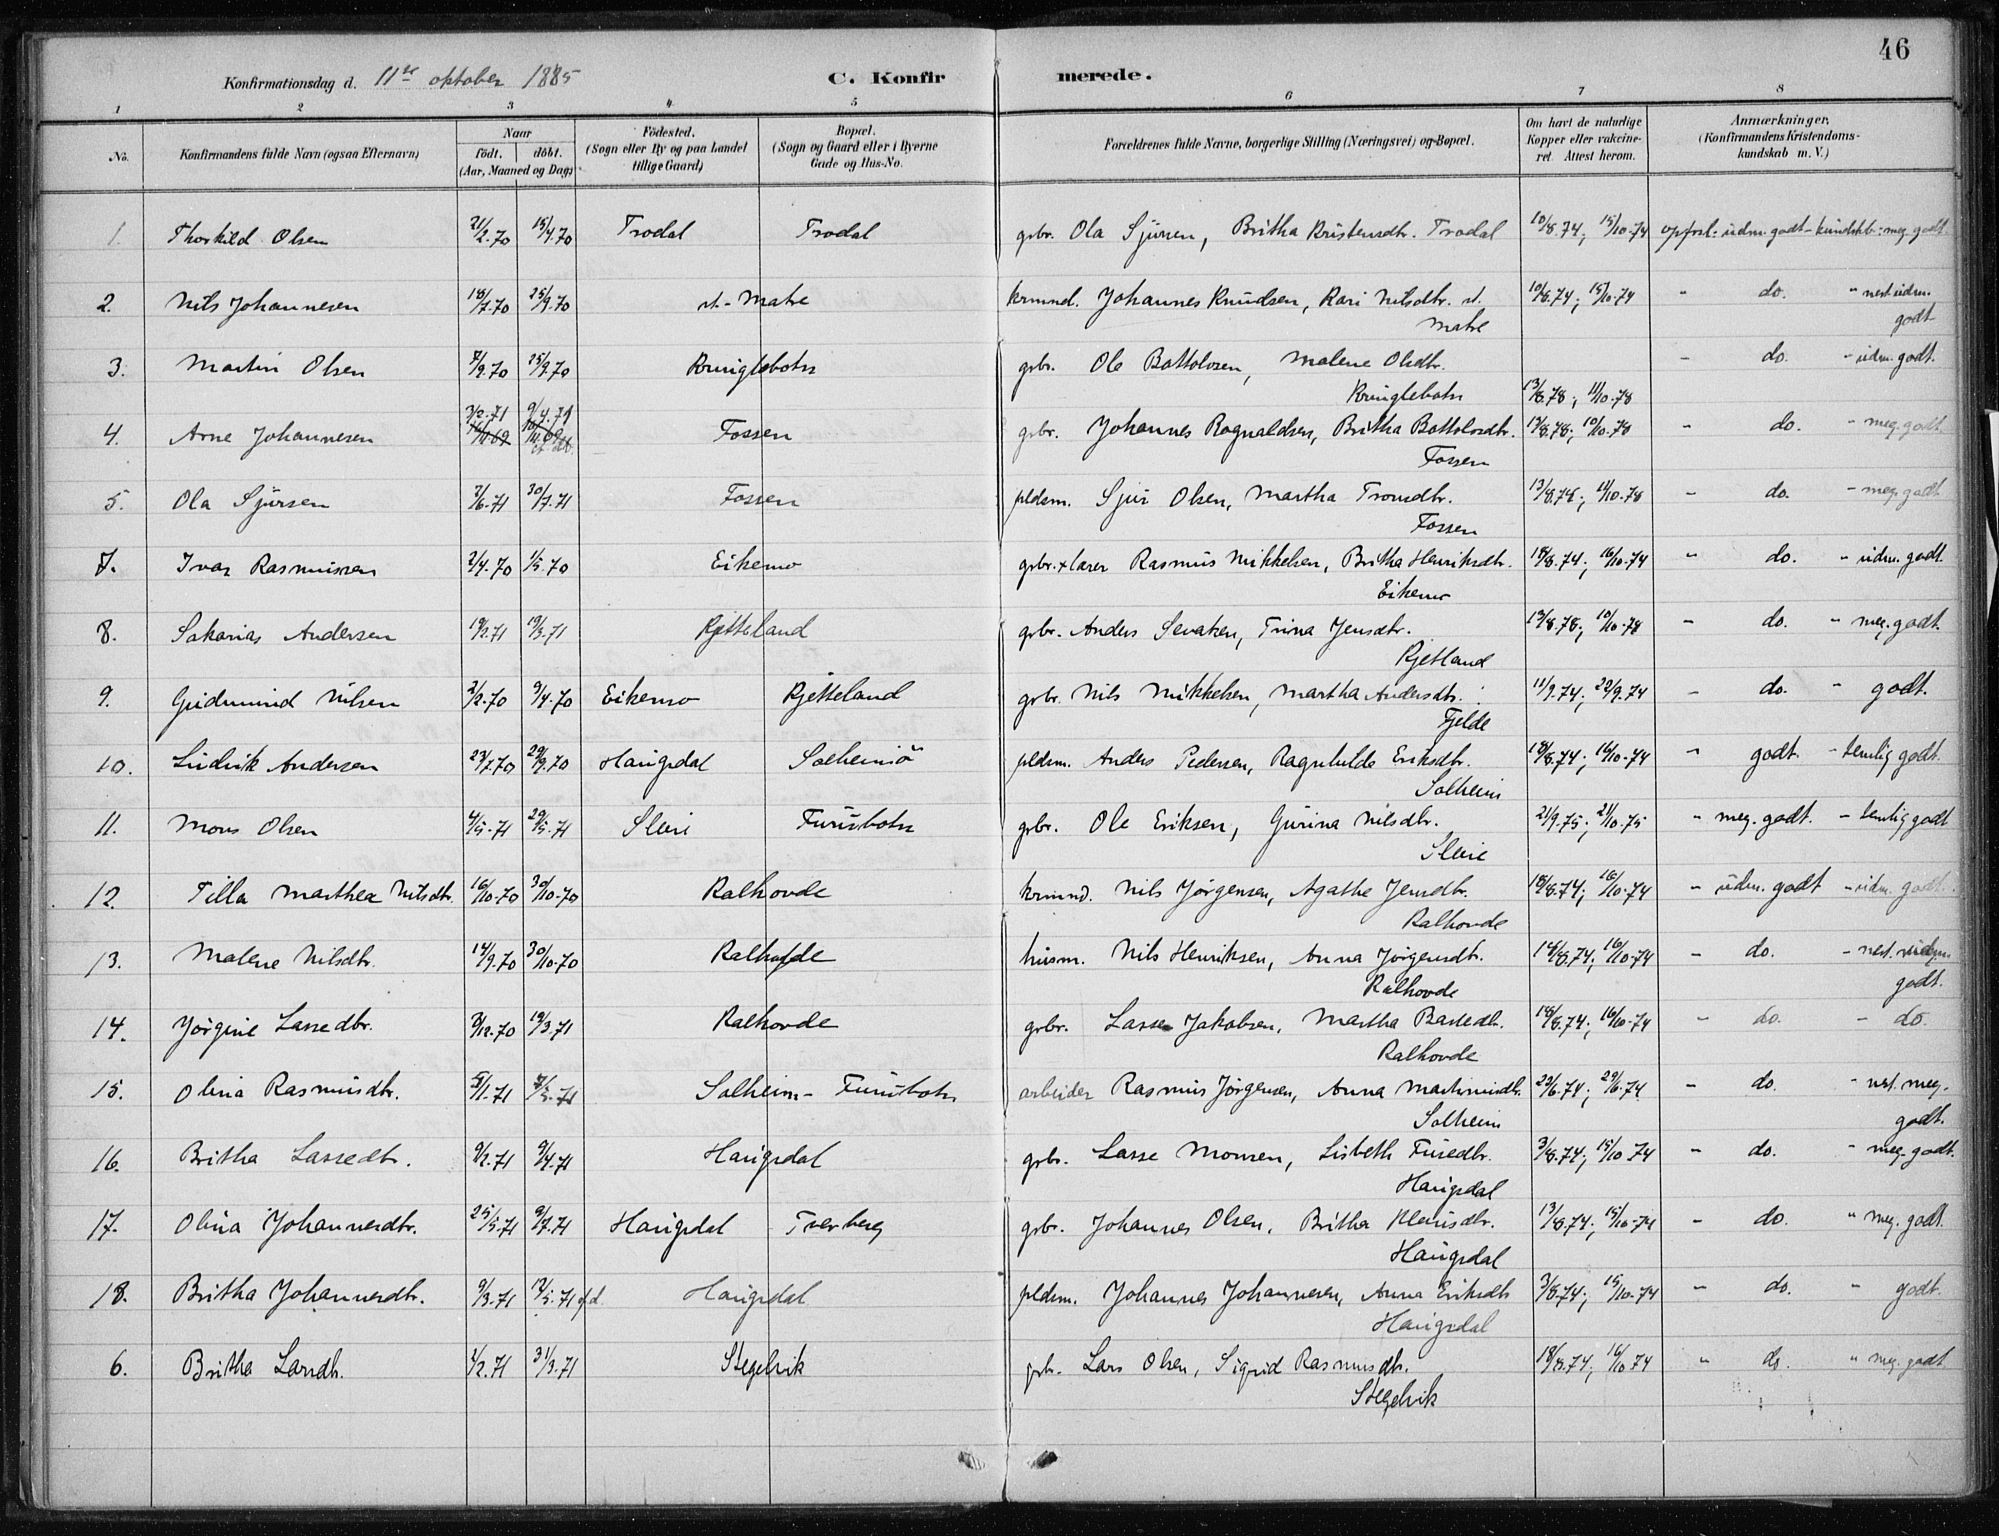 46
Konfirmationsdag d. 11te oktober 1885 C. Konfirmerede.
1 2 3 4 5 6 7 8
No. Konfirmandens fulde Navn (ogsaa Efternavn) Naar födt. döbt. (Aar, Maaned og Dag) Födested. (Sogn eller By og paa Landet tillige Gaard) Bopæl. (Sogn og Gaard eller i Byerne Gade og Hus-No. Forældrenes fulde Navne, borgerlige Stilling (Næringsvei) og Bopæl. Om havt de naturlige Kopper eller vakcineret. Attest herom. Anmærkninger. (Konfirmandens Kristendomskundskab m. V.)
1. Thorkild Olsen 21/2.70 15/4.70 Trodal Trodal grbr. Ola Sjursen, Britha Kristensdtr. Trodal 10/8.74; 15/10.74 opførs.: udm. godt - kundskb.: meg. godt.
2. Nils Johannesen 18/7.70 25/9.70 st. Matre krmnd. Johannes Knudsen, Kari Nilsdtr. st. 10/8.74; 15/10.74 " do. " nest udm.
Matre godt
3. Martin Olsen 7/9.70 25/9.70 Kringlebotn grbr. Ole Bottolvsen, Malene Olsdtr. - do. - udm. godt.
Kringlebotn 13/8.78; 11/10.78
3/2.71 9/4.71
4. Arne Johannesen Fossen gbr. Johannes Ragnaldsen, Britha Bottolvsdtr. 13/8.78; 10/10.78 - do. - meg. godt.
Fossen
5. Ola Sjursen 7/6.71 30/7.71 Fossen pldsm. Sjur Olsen, Martha Tromsdtr. 13/8.78; 11/10.78 - do. - meg. godt
Fossen
7. Ivar Rasmussen 2/4.70 1/5.70 Eikemo grbr. + lærer Rasmus Mikkelsen, Britha Henriksdtr. 18/8.74; 16/10.74 " do. - udm. godt.
Eikemo
8. Sakarias Andersen 19/2.71 19/3.71 Kjetteland grbr. Anders Sevatsen, Trina Jensdtr. 13/8.78; 10/10.78 - do. - meg. godt.
Kjetland
9. Gudmund Nilsen 2/2.70 9/4.70 Eikemo Kjetteland grbr. Nils Mikkelsen, Martha Andersdtr. 11/9.74; 22/9.74 - do. - godt.
Fjelde
10. Ludvik Andersen 23/7.70 29/9.70 Haugsdal Solheimsö pldsm. Anders Pedersen, Ragnhilde Eriksdtr. 18/8.74; 16/10.74 " godt. - temlig godt.
Solheim
11. Mons Olsen 4/5.71 29/5.71 Sleire Furubotn grbr. Ole Eriksen, Gurina Nilsdtr. 21/9.75; 21/10.75 " meg. godt. - temlig godt
Sleire
12. Tilla Marthea Nilsdtr. 16/10.70 30/10.70 Kalhovde krmnd. Nils Jørgensen, Agathe Jensdtr. 18/8.74; 16/10.74 - udm. godt - udm. godt.
Kalhovde
13. Malene Nilsdtr. 14/9.70 30/10.70 Kalhovde husm. Nils Henriksen, Anna Jørgensdtr. 18/8.74; 16/10.74 - do. - nest. udm.
Kalhovde godt.
14. Jørgine Lassedtr. 3/12.70 19/3.71 Kalhovde grbr. Lasse Jakobsen, Martha Bassedtr. 18/8.74; 16/10.74 - do. - do.
Kalhovde
15. Olina Rasmusdtr. 5/1.71 7/5.71 Solheim - Furubotn arbeider Rasmus Jörgensen, Anna Martinusdtr. 23/6.74; 29/6.74 - do. - nest. meg.
Solheim godt.
16. Britha Lassedtr. 9/2.71 9/4.71 Haugsdal grbr. Lasse Monsen, Lisbeth Fusedtr. 3/8.74; 15/10.74 - do. - meg. godt.
Haugsdal
17. Olina Johannesdtr. 25/5.71 9/7.71 Haugsdal Tverberg gbr. Johannes Olsen, Britha Klausdtr. 13/8.74; 15/10.74 - do. " meg. godt.
Haugsdal
18. Britha Johannesdtr. 9/3.71 12/5.71 Haugsdal pldsm. Johannes Johannesen, Anna Eriksdtr 3/8.74; 15/10.74 - do. " godt.
Haugsdal
6. Britha Larsdtr. 1/2.71 31/3.71 Stegelvik grbr. Lars Olsen, Sigrid Rasmusdtr. 18/8.74; 16/10.74 " do. " meg. godt
Stegelvik